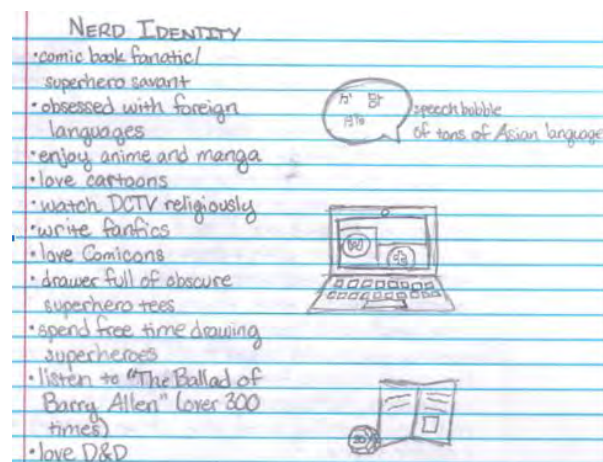 NERD IDENTITY
•comic book fanatic/
superhero savant
•obsessed with foreign
languages
•enjoy anime and manga
•love cartoons
•watch DCTV religiously
•write fanfics
•love Comicons
•drawer full of obscure
superhero tees
•spend free time drawing
superheroes
•listen to "The Ballad of
Barry Allen" (over 300
times)
•love D&D
speech bubble
of tons of Asian language
20